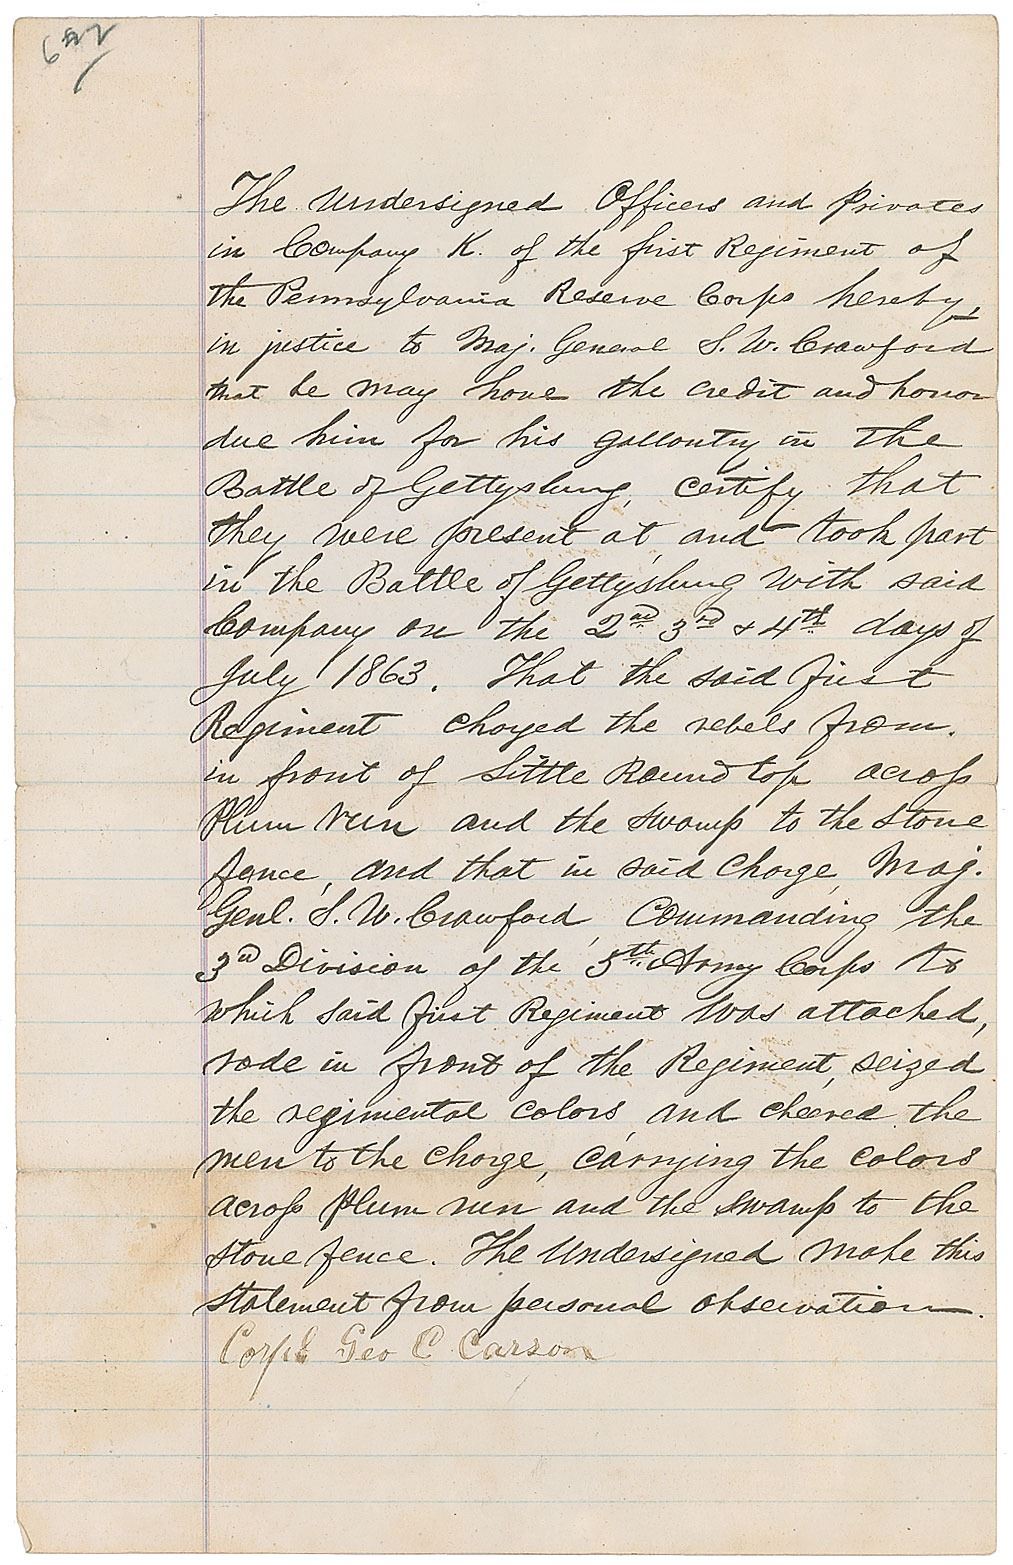 The Undersigned Officers and Privates
in Company K. of the first Regiment of
the Pennsylvania Reserve Corps hereby,
in justice to Maj. General S. W. Crawford
that he may have the credit and honor
due him for his gallantry in the
Battle of Gettysburg, certify that
they were present at, and took part
in the Battle of Gettysburg with said
Company on the 2nd 3rd & 4th days of
July 1863. That the said first
Regiment charged the rebels from.
in front of Little Round top across
Plum run and the swamp to the stone
fence, and that in said charge, Maj.
Genl. S. W. Crawford, Commanding the
3d Division of the 5th Army Corps to
which said first Regiment was attached,
rode in front of the Regiment, seized
the regimental colors, and cheered the
men to the charge, carrying the colors
across Plum run and the swamp to the
stone fence. The Undersigned make this
statement from personal observation.
Corpl Geo C Carson